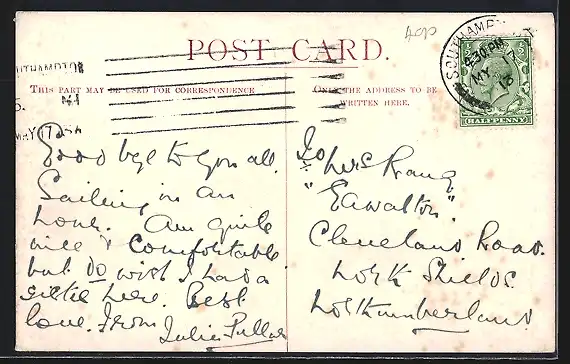 App
POST CARD.
THIS PART MAY BE USED FOR CORRESPONDENCE
ONLY THE ADDRESS TO BE
WRITTEN HERE.
SOUTHAMPTON
5.30 PM
MY 17
15
HALFPENNY
SOUTHAMPTON
MAY 17
Good bye to you all.
Sailing in an
hour. Am quite
nice & comfortable
but do wish I had a
settee here. Best
love. From Julie Pullar
To Mrs
Cleveland Road.
North Shields.
Northumberland